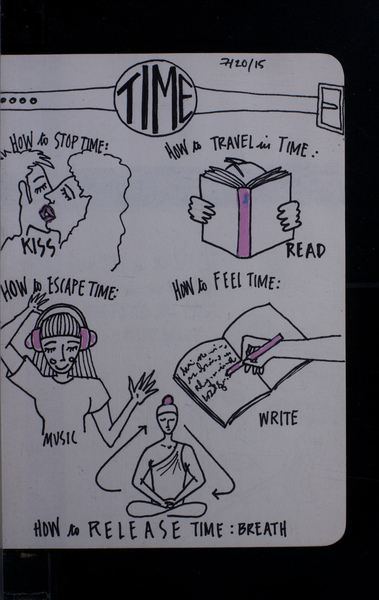 7/20/15
TIME
HOW to STOP TIME:
HOW to TRAVEL in TIME:
KISS
READ
HOW to ESCAPE TIME:
HOW to FEEL TIME:
MUSIC
WRITE
HOW to RELEASE TIME: BREATH